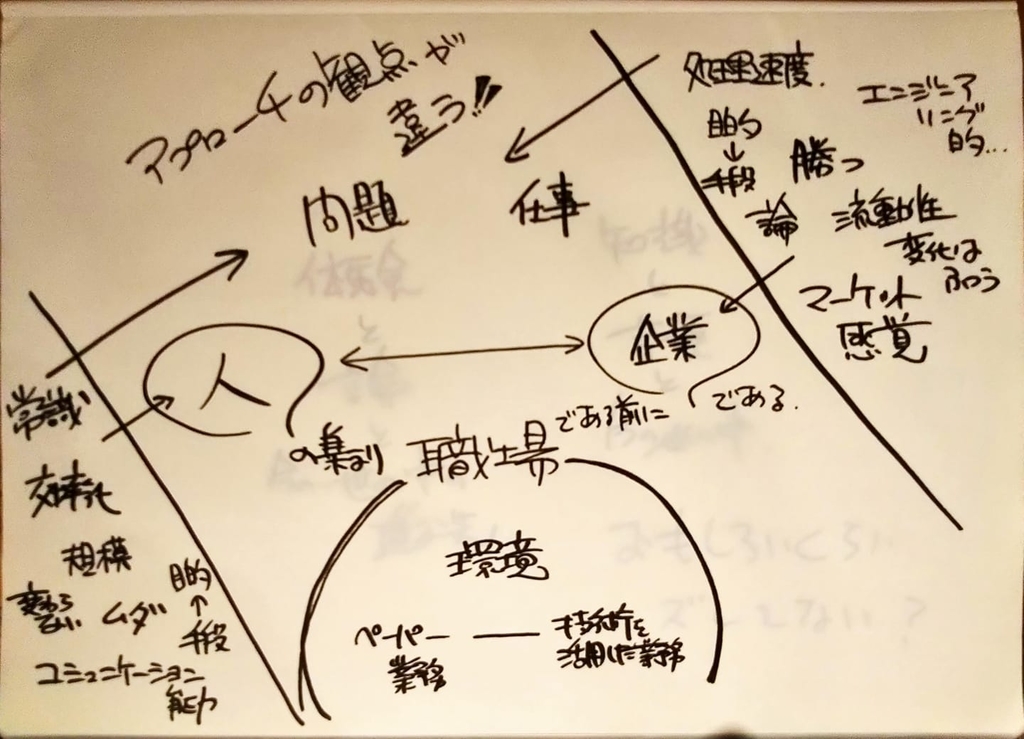 アプローチの観点が
違う!!
問題
仕事
処理速度.
目的
↓
手段
論
勝つ
エンジニア
リング
的...
流動性
変化は
ふつう
マーケット
感覚
人
の集まり
企業
である前に
である.
職場
環境
ペーパー
業務
技術を
活用した業務
常識
効率化
規模
変わら
ない
ムダ
目的
↑
手段
コミュニケーション
能力
体験会
おもしろいくらい
ズ
てない?